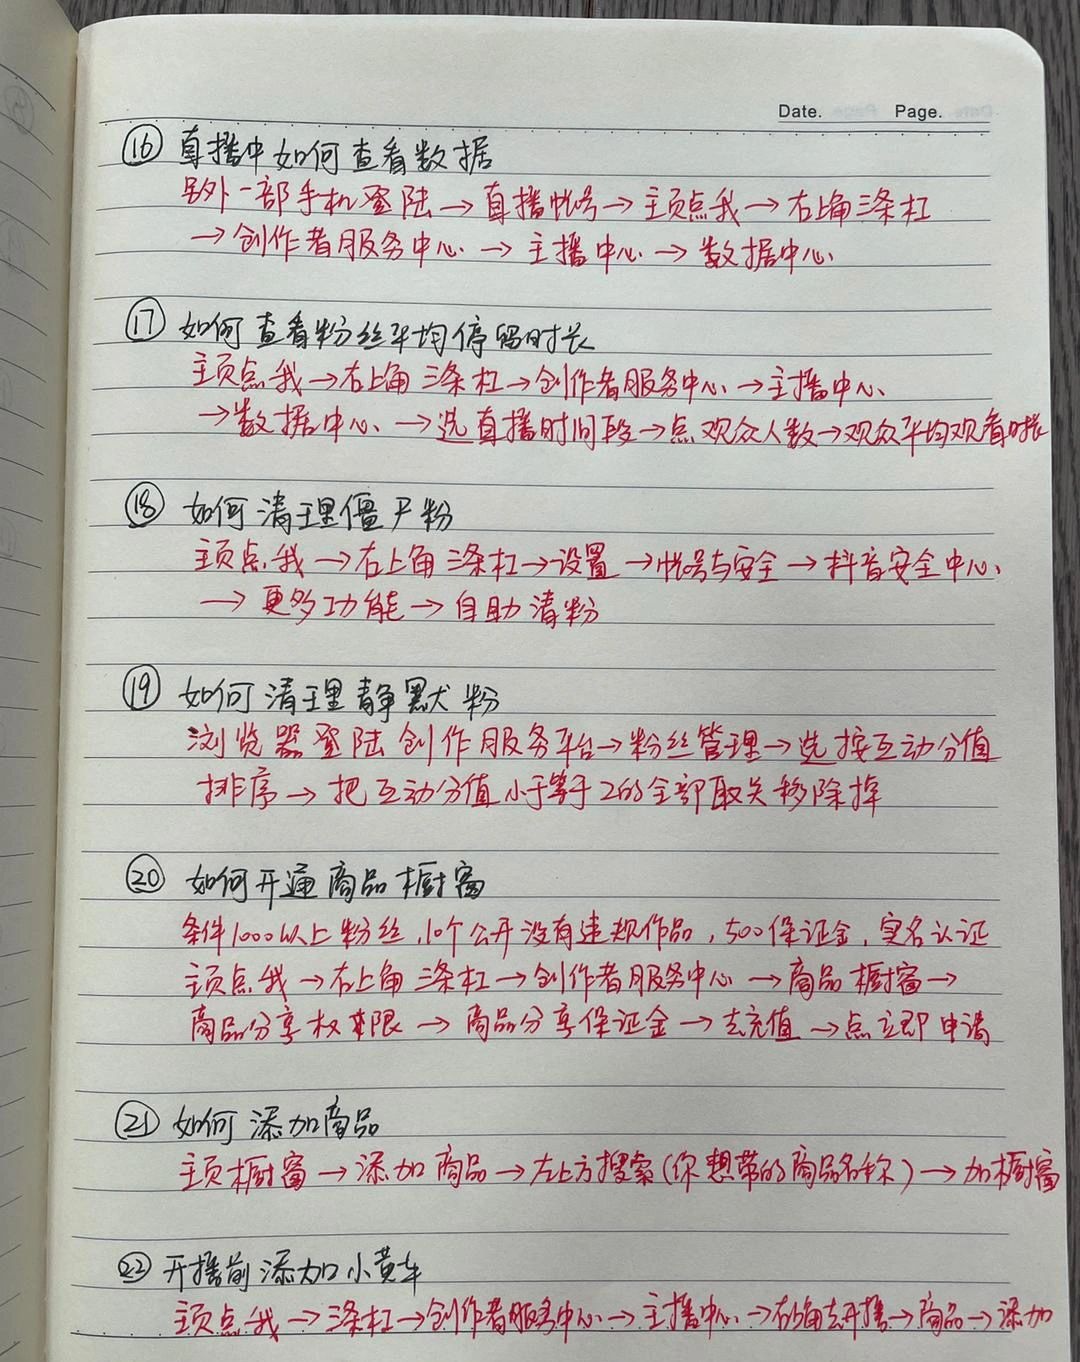 Date. Page.
⑯ 直播中如何查看数据
另外一部手机登陆→直播帐号→主页点我→右上角三条杠
→创作者服务中心→主播中心→数据中心
⑰ 如何查看粉丝平均停留时长
主页点我→右上角三条杠→创作者服务中心→主播中心
→数据中心→选直播时间段→点观众人数→观众平均观看时长
⑱ 如何清理僵尸粉
主页点我→右上角三条杠→设置→帐号与安全→抖音安全中心
→更多功能→自助清粉
⑲ 如何清理静默粉
浏览器登陆创作服务平台→粉丝管理→选按互动分值
排序→把互动分值小于等于2的全部取关移除掉
⑳ 如何开通商品橱窗
条件1000以上粉丝,10个公开没有违规作品,500保证金,实名认证
主页点我→右上角三条杠→创作者服务中心→商品橱窗→
商品分享权限→商品分享保证金→去充值→点立即申请
㉑ 如何添加商品
主页橱窗→添加商品→左上方搜索(你想带的商品名称)→加橱窗
㉒ 开播前添加小黄车
主页点我→三条杠→创作者服务中心→主播中心→右上角去开播→商品→添加